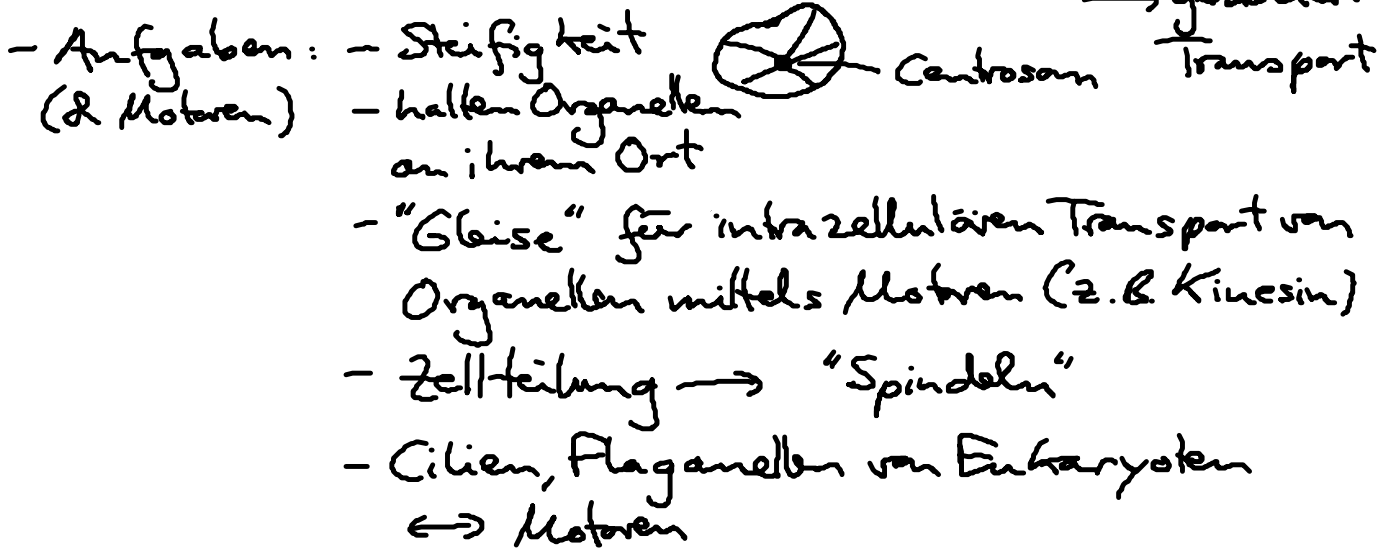 - Aufgaben : - Steifigkeit
Centrosom
Transport
(& Motoren) - halten Organellen
an ihrem Ort
- "Gleise" für intrazellulären Transport von
Organellen mittels Motoren (z.B. Kinesin)
- Zellteilung → "Spindeln"
- Cilien, Flaganellen von Eukaryoten
↔ Motoren